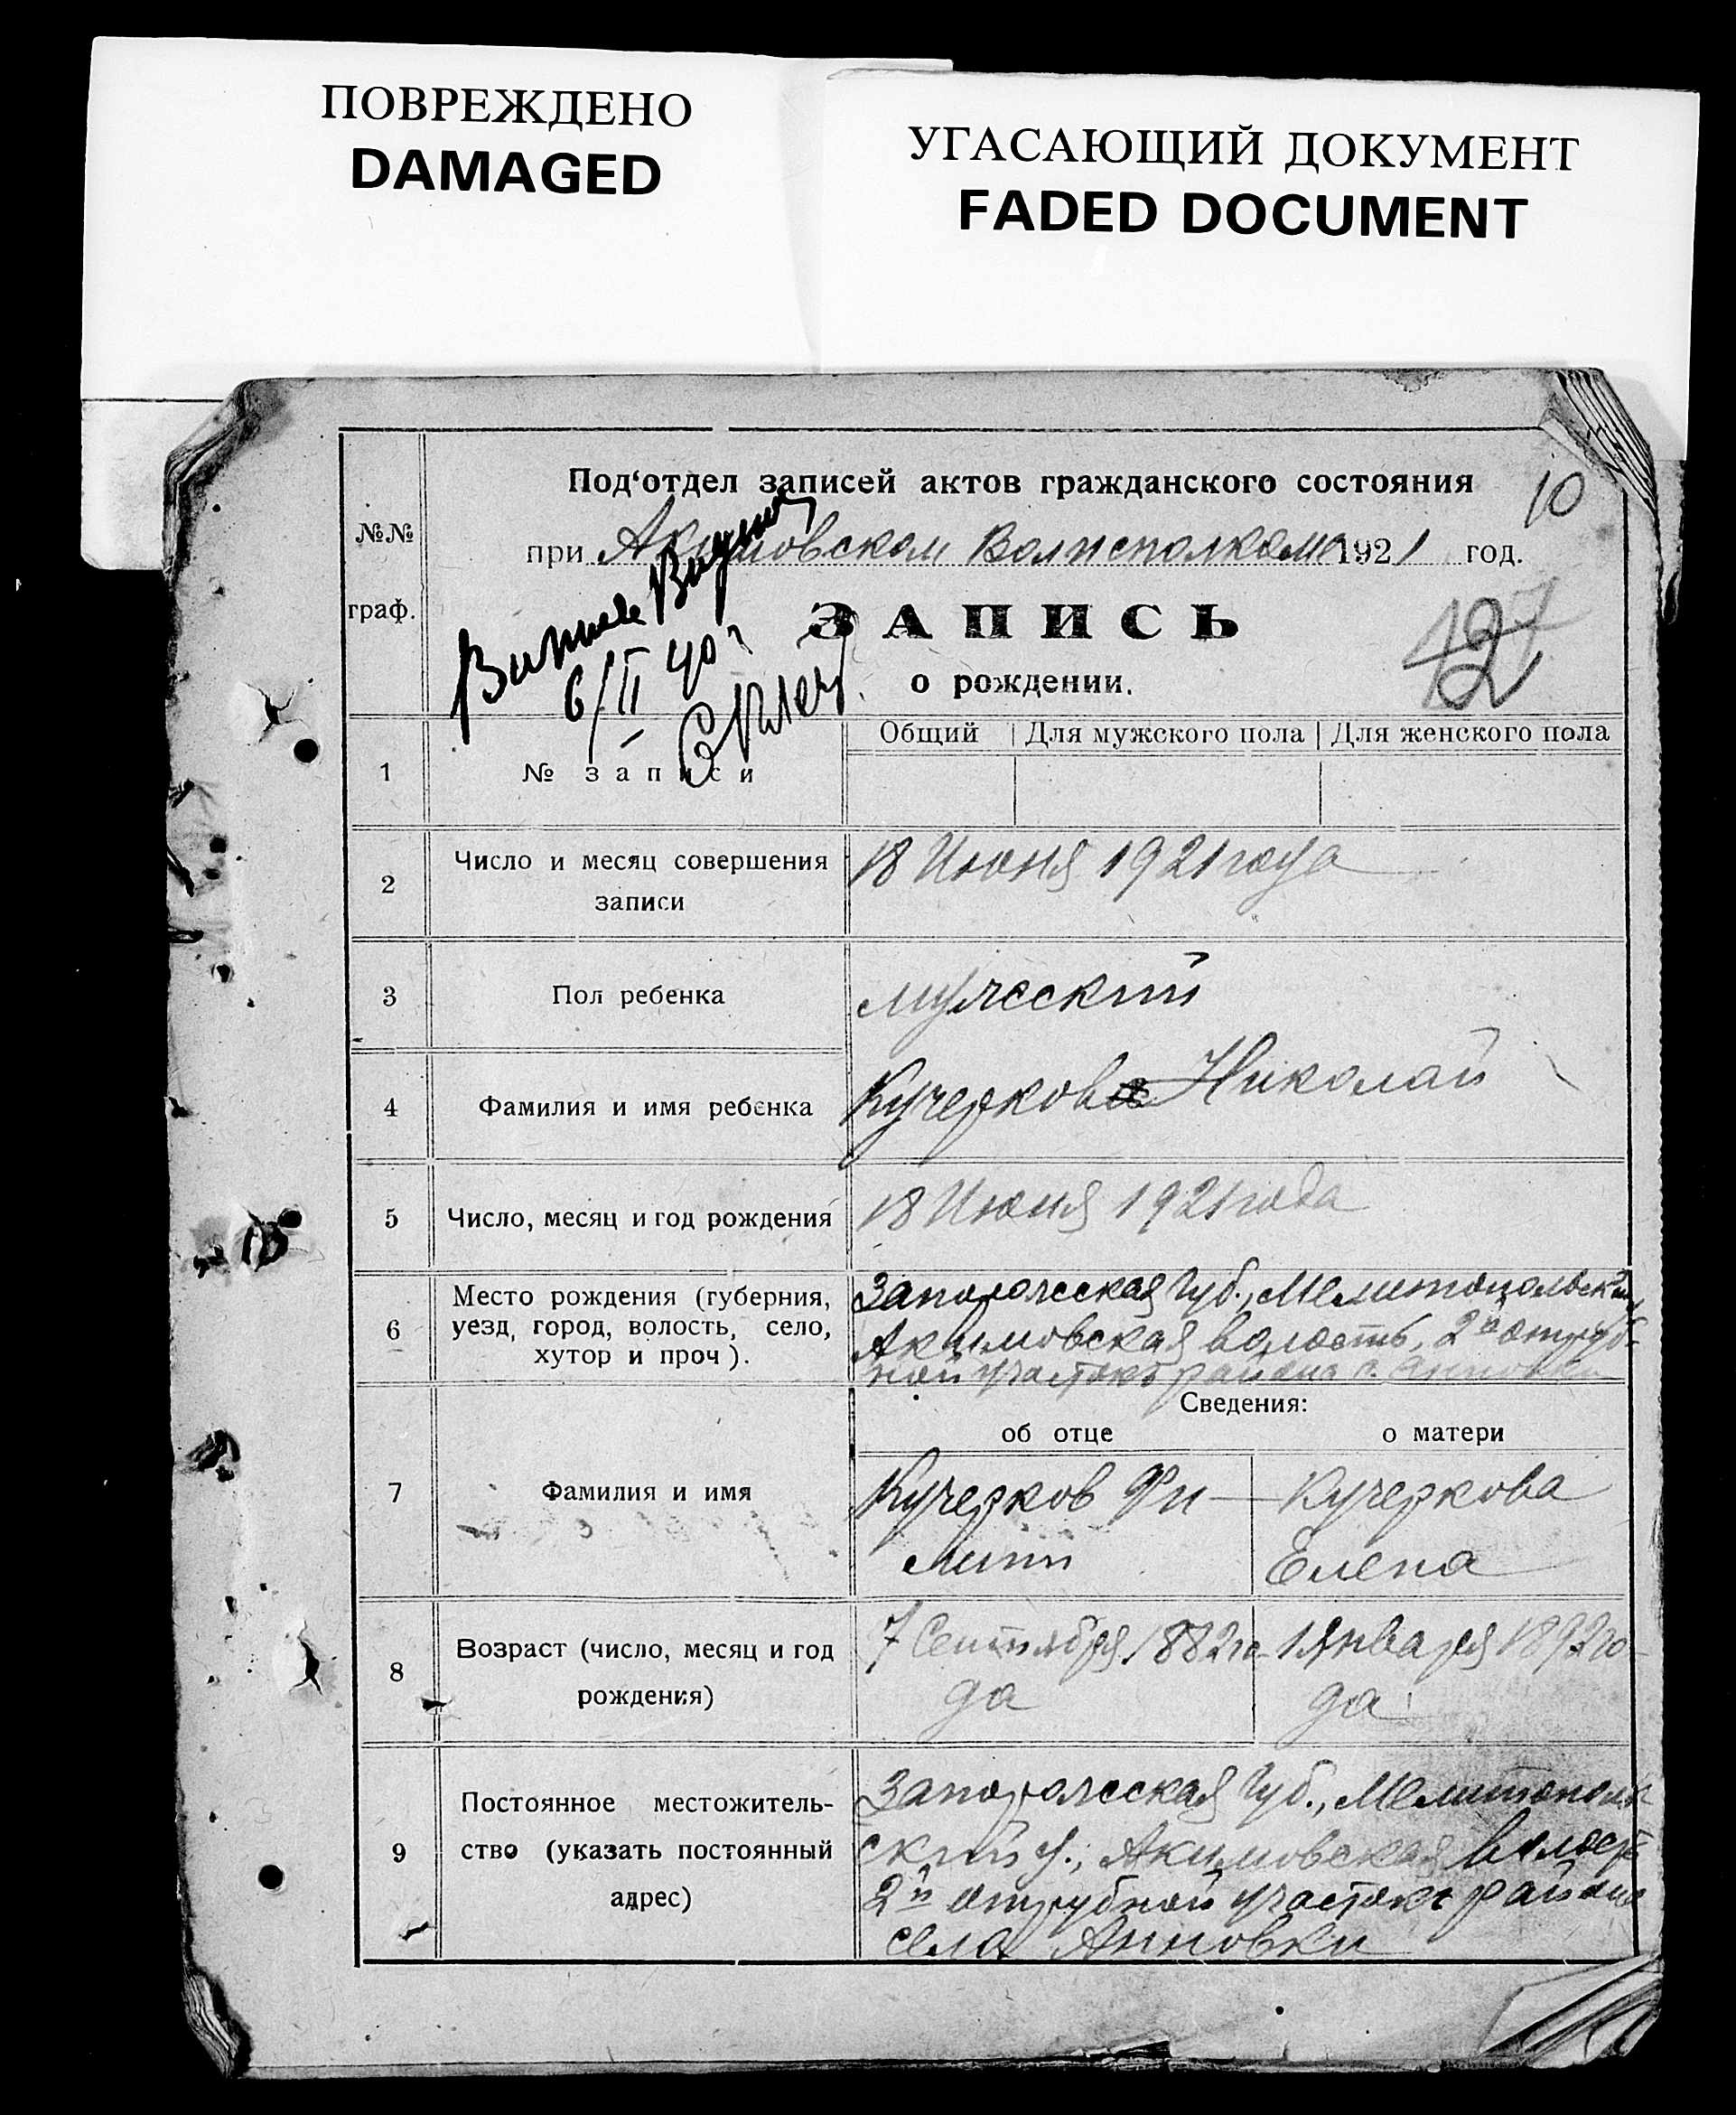 ПОВРЕЖДЕНО
DAMAGED
УГАСАЮЩИЙ ДОКУМЕНТ
FADED DOCUMENT
Под‘отдел записей актов гражданского состояния
10
при Акимовском Волисполкоме 1921 год.
№№
граф.
ЗАПИСЬ
о рождении.
6/II 40 г
Общий Для мужского пола Для женского пола
1 № записи
2 Число и месяц совершения
записи
18 Июня 1921 года
3 Пол ребенка
мужеский
4 Фамилия и имя ребенка
Кучерков Николай
5 Число, месяц и год рождения
18 Июня 1921 года
6 Место рождения (губерния,
уезд, город, волость, село,
хутор и проч).
Запорожеская Губ., Мелитопольский
Акимовская волость, 2й отруб-
ной участок района с. Анновки
Сведения:
об отце о матери
7 Фамилия и имя
Кучерков Фи-
липп
Кучеркова
Елена
8 Возраст (число, месяц и год
рождения)
7 Сентября 1882 го-
да
1 Января 1892 го-
да
9 Постоянное местожитель-
ство (указать постоянный
адрес)
Запорожеская Губ., Мелитополь
ский у., Акимовская волость
2й отрубной участок района
села Анновки